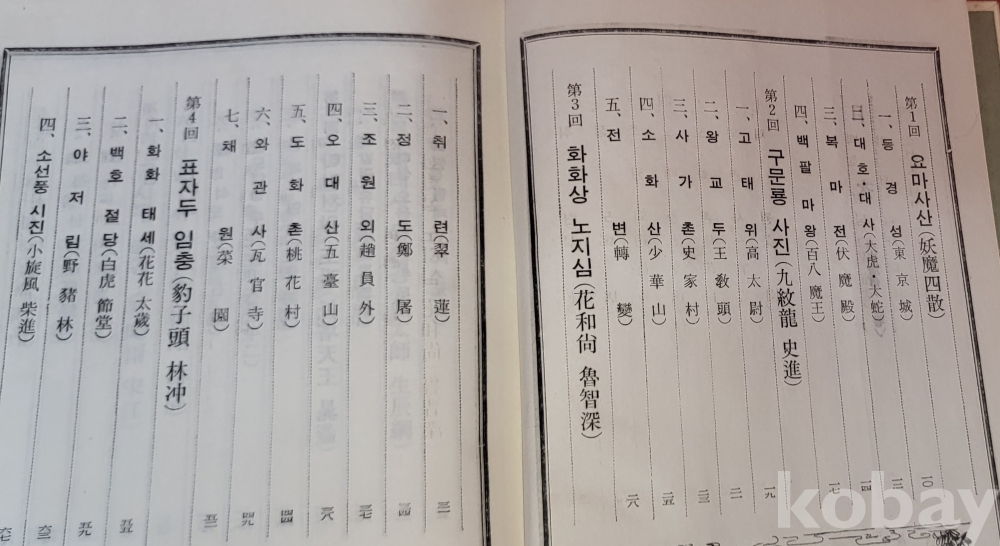 第1回 요마사산(妖魔四散)
一、동경성(東京城) 一〇
二、대호・대사(大虎・大蛇) 一二
三、복마전(伏魔殿) 一四
四、백팔마왕(百八魔王) 一七
第2回 구문룡 사진(九紋龍 史進)
一、고태위(高太尉) 一九
二、왕교두(王敎頭) 二一
三、사가촌(史家村) 二三
四、소화산(少華山) 二五
五、전변(轉變) 二八
第3回 화화상 노지심(花和尙 魯智深)
一、취련(翠蓮) 三一
二、정도(鄭屠) 三四
三、조원외(趙員外) 三七
四、오대산(五臺山) 三八
五、도화촌(桃花村) 四四
六、와관사(瓦官寺) 四九
七、채원(菜園) 五三
第4回 표자두 임충(豹子頭 林冲)
一、화화태세(花花太歲) 五五
二、백호절당(白虎節堂) 五九
三、야저림(野豬林) 六三
四、소선풍 시진(小旋風 柴進) 六七
kobay